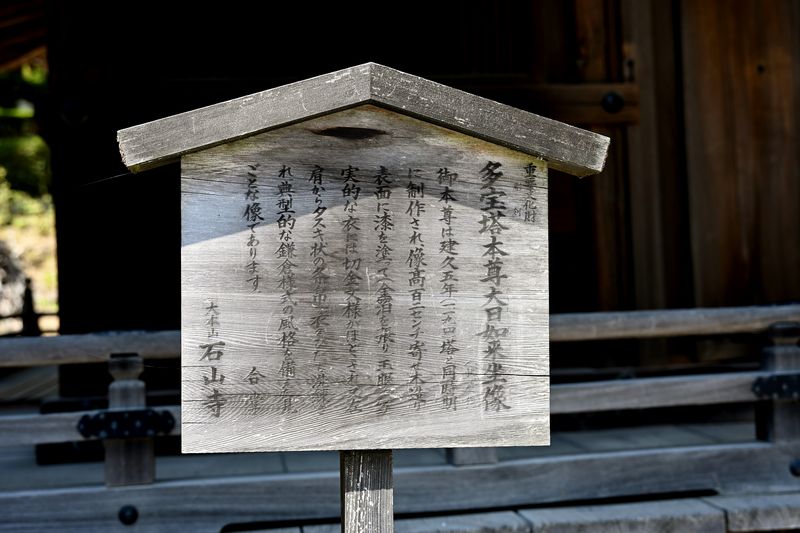 重要文化財
多宝塔本尊大日如来坐像
御本尊は建久五年(一一九四)塔と同時期
に制作され像高百一センチ寄せ木造り
表面に漆を塗って金泊を張り玉眼
実的な衣には切金文様がほどこされ左
肩からタスキ状の条帛
れ典型的な鎌倉様式の風格を備えた見
ごとな像であります。
合掌
大本山 石山寺